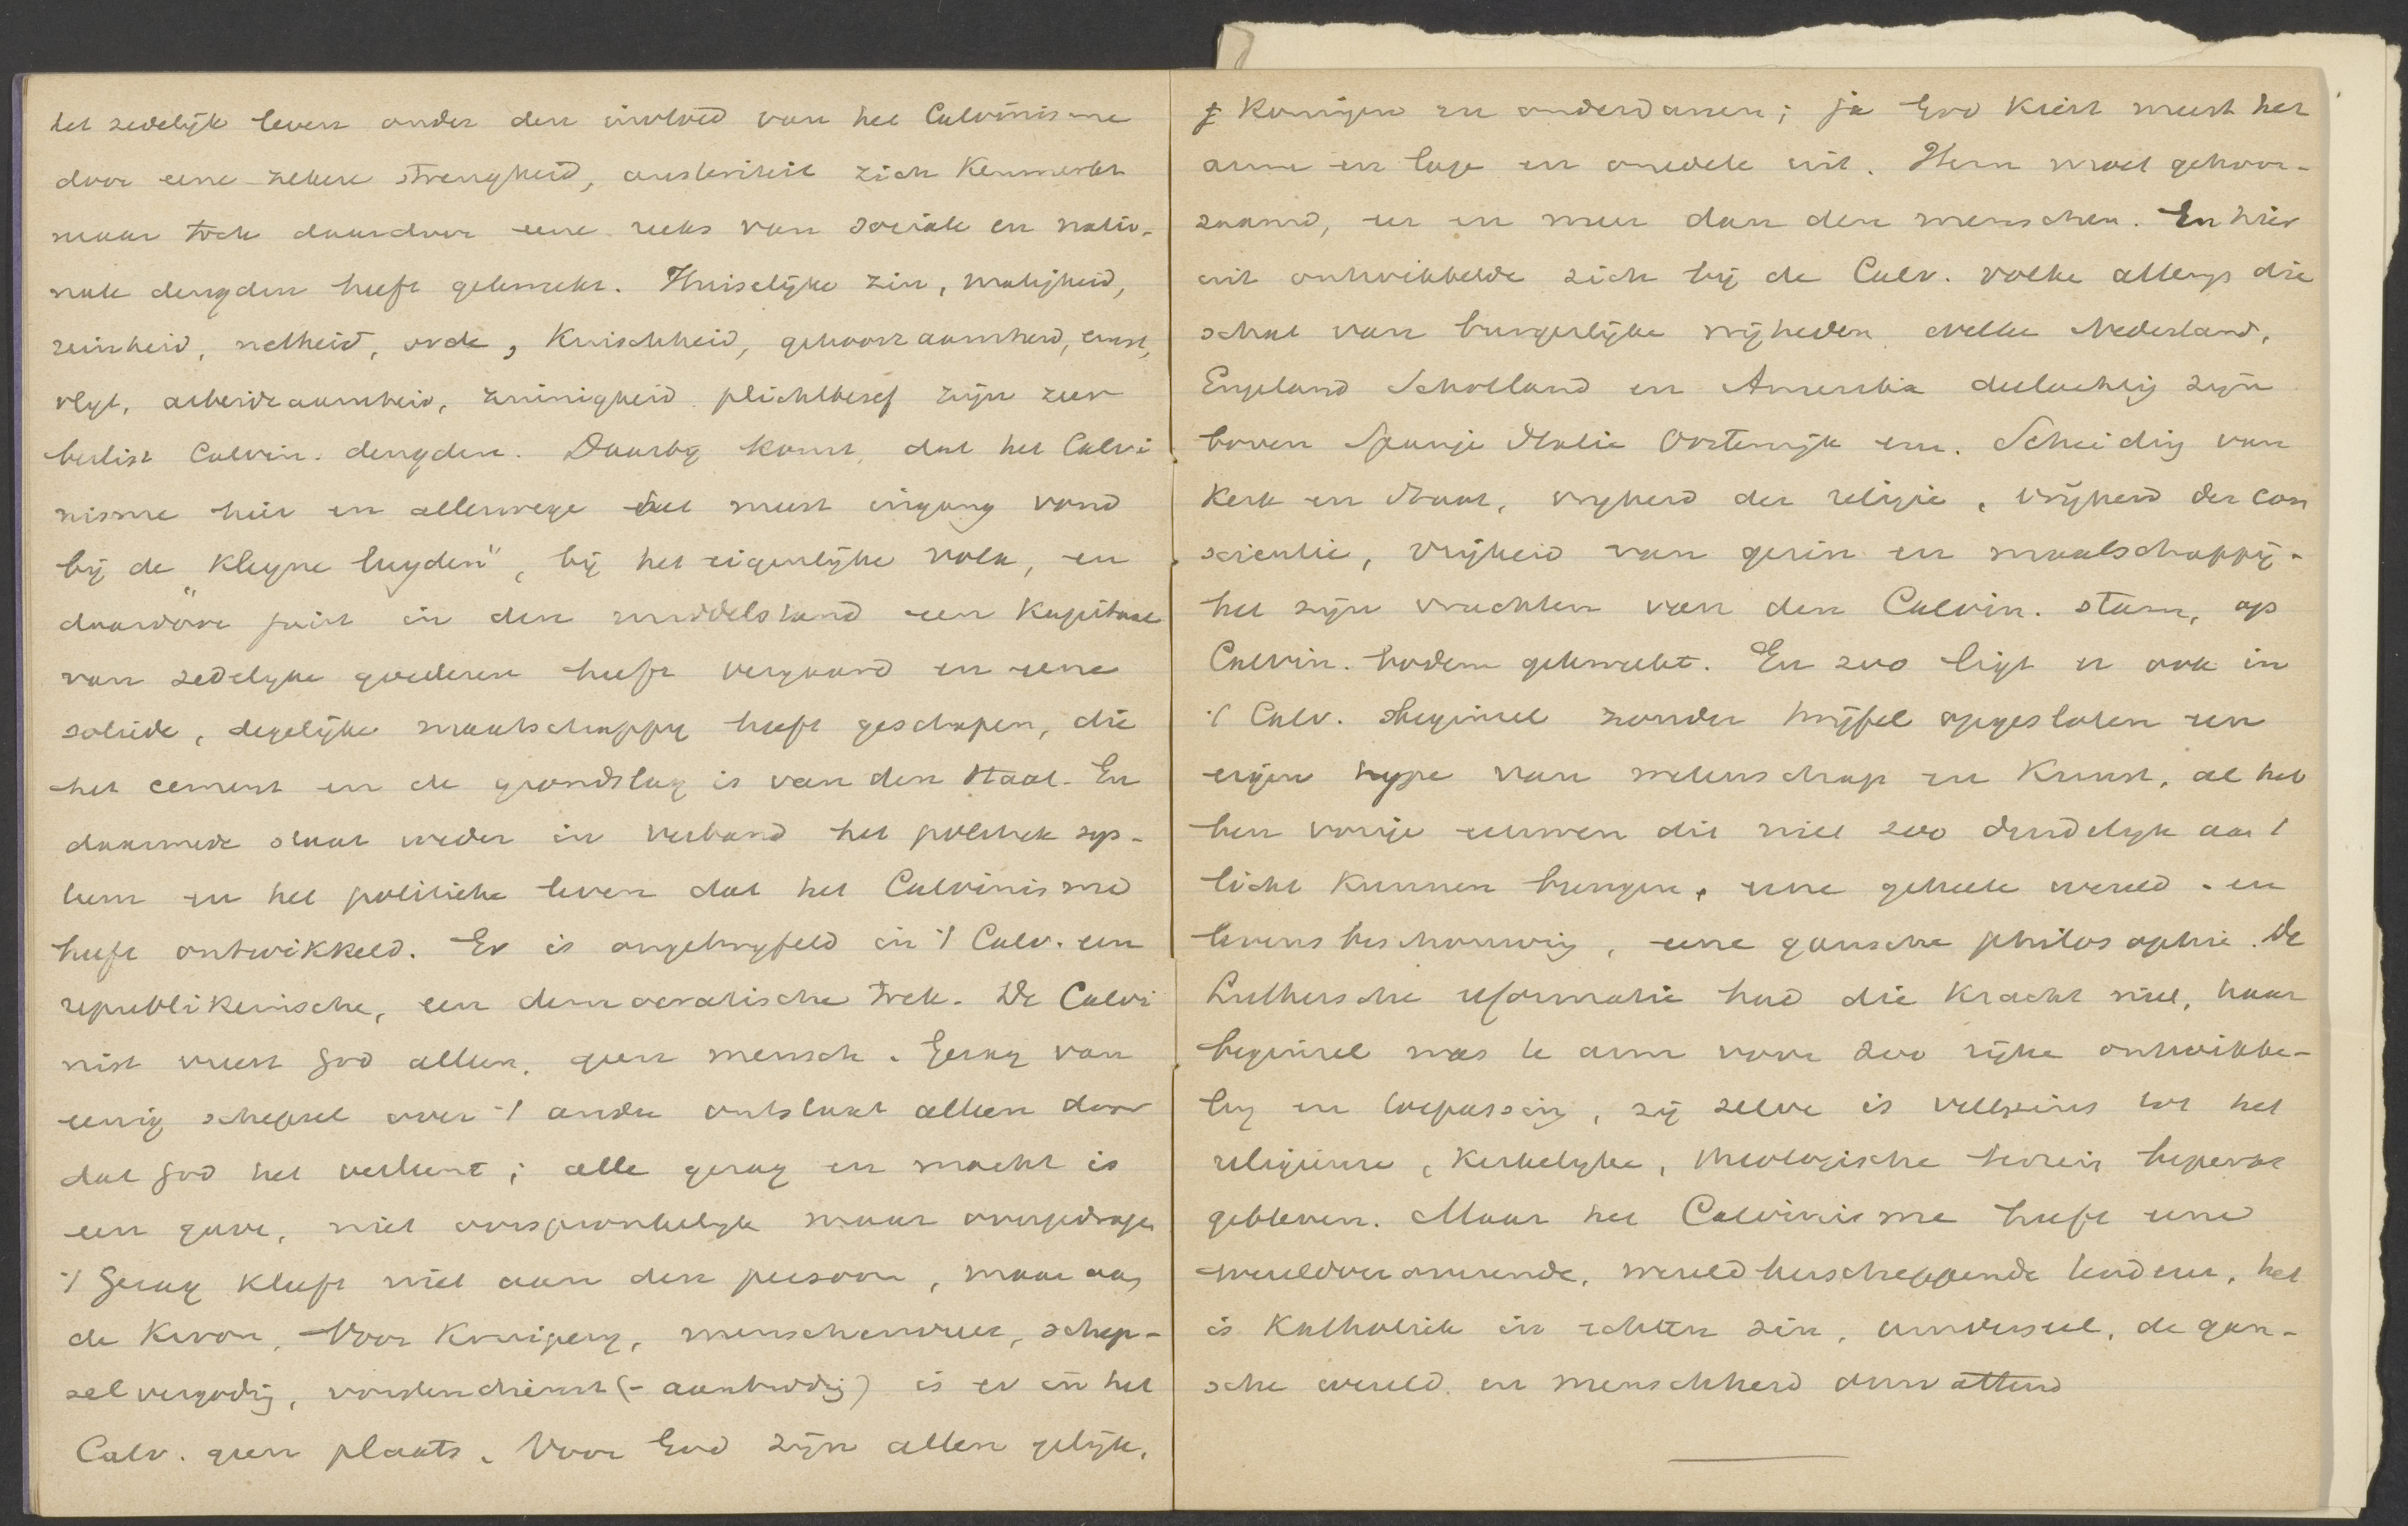 het zedelijk leven onder den invloed van het Calvinisme
door eene zekere strengheid, austeriteit zich kenmerkt
maar toch daardoor eene reeks van sociale en natio-
nale deugden heeft gekweekt. Huiselijke zin, matigheid,
reinheid, netheid, orde, Kuischheid, gehoorzaamheid, ernst,
vlijt, arbeidzaamheid, zuinigheid plichtbesef zijn zeer
beslist Calvin. deugden. Daarbij komt, dat het Calvi
nisme hier en allerwege het meest ingang vond
bij de "Kleyne luyden", bij het eigenlijke volk, en
daardoor juist in den middelstand een Kapitaal
van zedelijke goederen heeft vergaard en eene
solide, degelijke maatschappij heeft geschapen, die
het cement en de grondslag is van den Staat. En
daarmede staat weder in verband het politiek sys-
teem en het politieke leven dat het Calvinisme
heeft ontwikkeld. Er is ongetwijfeld in 't Calv. een
republikeinsche, een democratische trek. De Calvi
nist vreest God alleen, geen mensch. Gezag van
eenig schepsel over 't andre ontstaat alleen door
dat God het verleent; alle gezag en macht is
een gave, niet oorspronkelijk maar overgedragen
't Gezag kleeft niet aan den persoon, maar aan
de Kroon. Voor Kruiperij, menschenvrees, schep-
selvergoding, vorstendienst (-aanbidding) is er in het
Calv. geen plaats. Voor God zijn allen gelijk,
Koningen en onderdanen; ja God kiest meest het
arme en lage en onedele uit. Hem moet gehoor-
zaamd, eer en meer dan den menschen. En hier
uit ontwikkelde zich bij de Calv. volke allengs die
schat van burgerlijke vrijheden welke Nederland,
Engeland Schotland en Amerika deelachtig zijn
boven Spanje Italie Oostenrijk enz. Scheiding van
Kerk en Staat, vrijheid der religie, vrijheid der con
scientie, vrijheid van gezin en maatschappij-
het zijn vruchten van den Calvin. stam, op
Calvin. bodem gekweekt. En zoo ligt er ook in
't Calv. beginsel zonder twijfel opgesloten een
eigen type van wetenschap en Kunst, al heb
ben vorige eeuwen dit niet zoo duidelijk aan 't
licht kunnen brengen, eene geheele wereld- en
levensbeschouwing, eene gansche philosophie. De
Luthersche reformatie had die kracht niet, haar
beginsel was te arm voor zoo rijke ontwikke-
ling en toepassing, zij zelve is veelszins tot het
religieuse, Kerkelijke, theologische terrein beperkt
gebleven. Maar het Calvinisme heeft eene
wereldveroverende, wereldherscheppende tendens, het
is Katholiek in echten zin, universeel, de gan-
sche wereld en menschheid omvattend